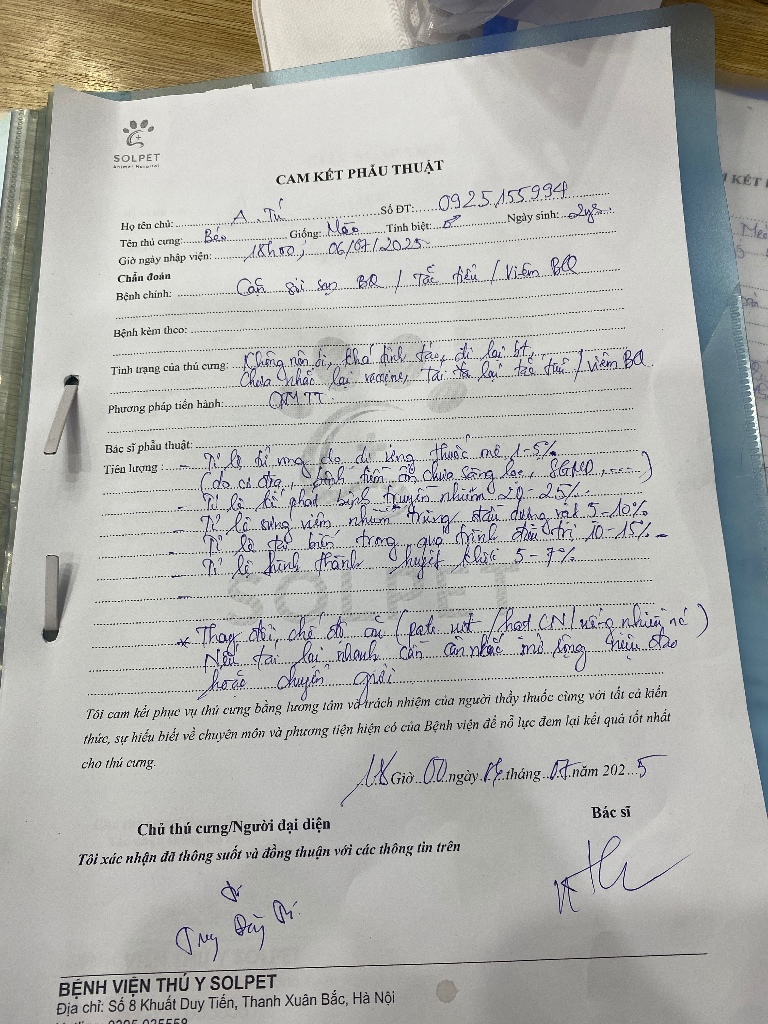 SOLPET
Animal Hospital
CAM KẾT PHẪU THUẬT
Họ tên chủ: A. Tú Số ĐT: 0925155994
Tên thú cưng: Báo Giống: Mèo Tính biệt: ♂ Ngày sinh: 2ys
Giờ ngày nhập viện: 18h00, 06/07/2025
Chẩn đoán
Bệnh chính: Cặn sỏi sạn BQ / Tắc tiểu / Viêm BQ
Bệnh kèm theo:
Tình trạng của thú cưng: Không nôn, ỉa, khá tỉnh táo, đi lại bt
Chưa nhắc lại vaccine, Tái lại tắc tiểu / viêm BQ
Phương pháp tiến hành:
Bác sĩ phẫu thuật:
Tiên lượng: - Tỉ lệ tử vong do dị ứng thuốc mê 1-5%
(do cơ địa, bệnh tiềm ẩn chưa sàng lọc, SGMD, ....)
- Tỉ lệ kế phát bệnh truyền nhiễm 20-25%
- Tỉ lệ sưng viêm nhiễm trùng, đào dương vật 5-10%
- Tỉ lệ tai biến trong quá trình điều trị 10-15%
- Tỉ lệ hình thành huyết khối 5-7%
-
* Thay đổi chế độ ăn (pate ướt / hạt CN / uống nhiều nc)
Nếu tái lại nhanh cần cân nhắc mở niệu đạo
hoặc chuyển giới
Tôi cam kết phục vụ thú cưng bằng lương tâm và trách nhiệm của người thầy thuốc cùng với tất cả kiến
thức, sự hiểu biết về chuyên môn và phương tiện hiện có của Bệnh viện để nỗ lực đem lại kết quả tốt nhất
cho thú cưng.
18 Giờ 00 ngày 06 tháng 07 năm 2025
Chủ thú cưng/Người đại diện Bác sĩ
Tôi xác nhận đã thông suốt và đồng thuận với các thông tin trên
BỆNH VIỆN THÚ Y SOLPET
Địa chỉ: Số 8 Khuất Duy Tiến, Thanh Xuân Bắc, Hà Nội